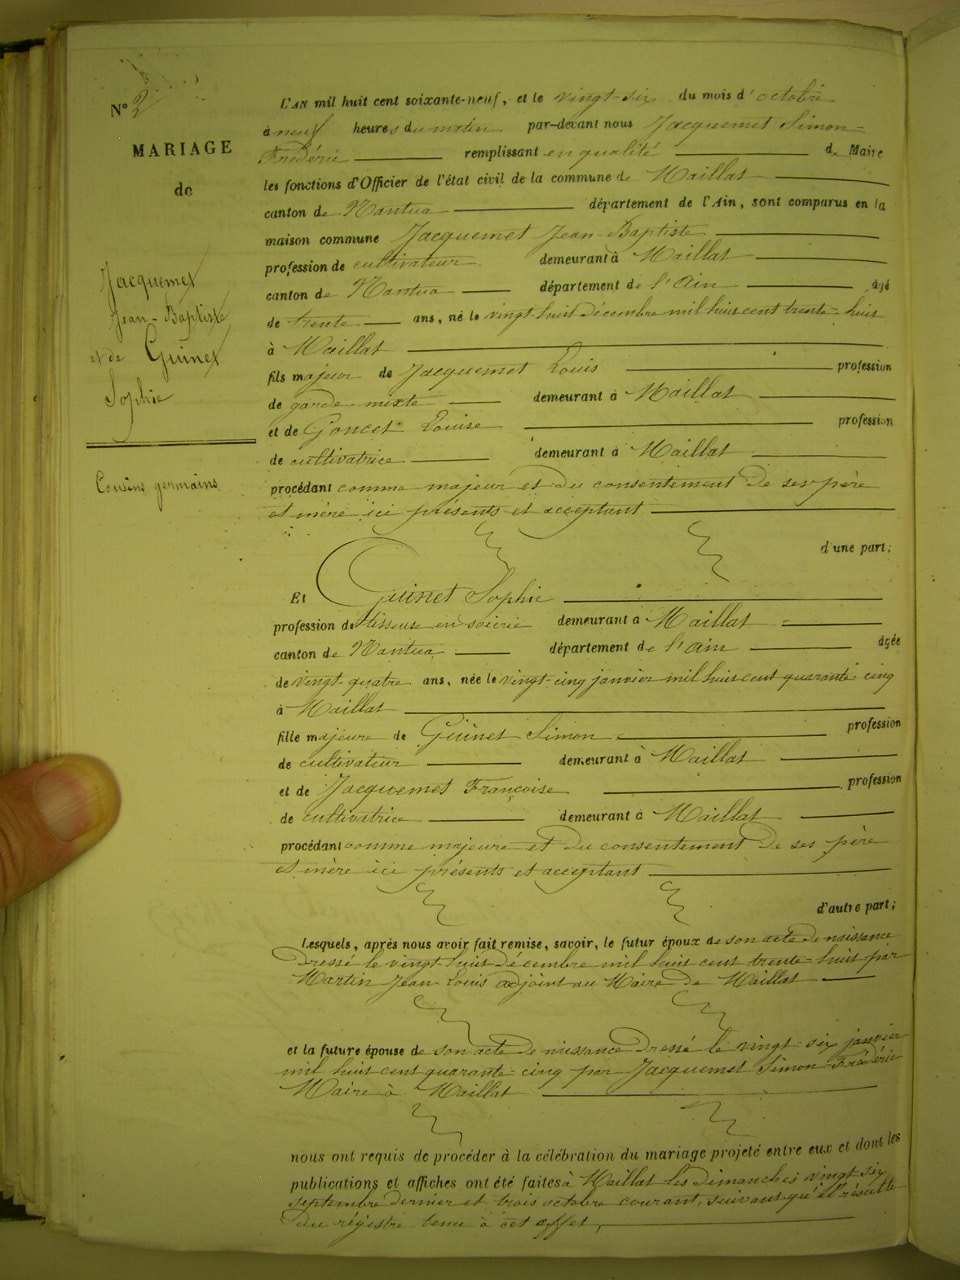 N° 2
MARIAGE
de
Jacquemet
Jean-Baptiste
et de Guinet
Sophie
Cousins germains
L'AN mil huit cent soixante-neuf, et le vingt-six du mois d'octobre
à neuf heures du matin par-devant nous Jacquemet Simon-
Frédéric remplissant en qualité de Maire
les fonctions d'Officier de l'état civil de la commune de Maillat
canton de Nantua département de l'Ain, sont comparus en la
maison commune Jacquemet Jean-Baptiste
profession de cultivateur demeurant à Maillat
canton de Nantua département de l'Ain âgé
de trente ans, né le vingt-huit décembre mil huit cent trente-huit
à Maillat
fils majeur de Jacquemet Louis profession
de garde mixte demeurant à Maillat
et de Goncet Louise profession
de cultivatrice demeurant à Maillat
procédant comme majeur et du consentement de ses père
et mère ici présents et acceptant
d'une part;
Et Guinet Sophie
profession de tisseuse en soierie demeurant à Maillat
canton de Nantua département de l'Ain âgée
de vingt-quatre ans, née le vingt-cinq janvier mil huit cent quarante-cinq
à Maillat
fille majeure de Guinet Simon profession
de cultivateur demeurant à Maillat
et de Jacquemet Françoise profession
de cultivatrice demeurant à Maillat
procédant comme majeure et du consentement de ses père
et mère ici présents et acceptant
d'autre part;
Lesquels, après nous avoir fait remise, savoir, le futur époux de son acte de naissance
dressé le vingt-huit décembre mil huit cent trente-huit par
Martin Jean Louis adjoint au Maire de Maillat
et la future épouse de son acte de naissance dressé le vingt-six janvier
mil huit cent quarante-cinq par Jacquemet Simon Frédéric
Maire à Maillat
nous ont requis de procéder à la célébration du mariage projeté entre eux et dont les
publications et affiches ont été faites à Maillat les dimanches vingt-six
septembre dernier et trois octobre courant, suivant qu'il résulte
du régistre tenu à cet effet,